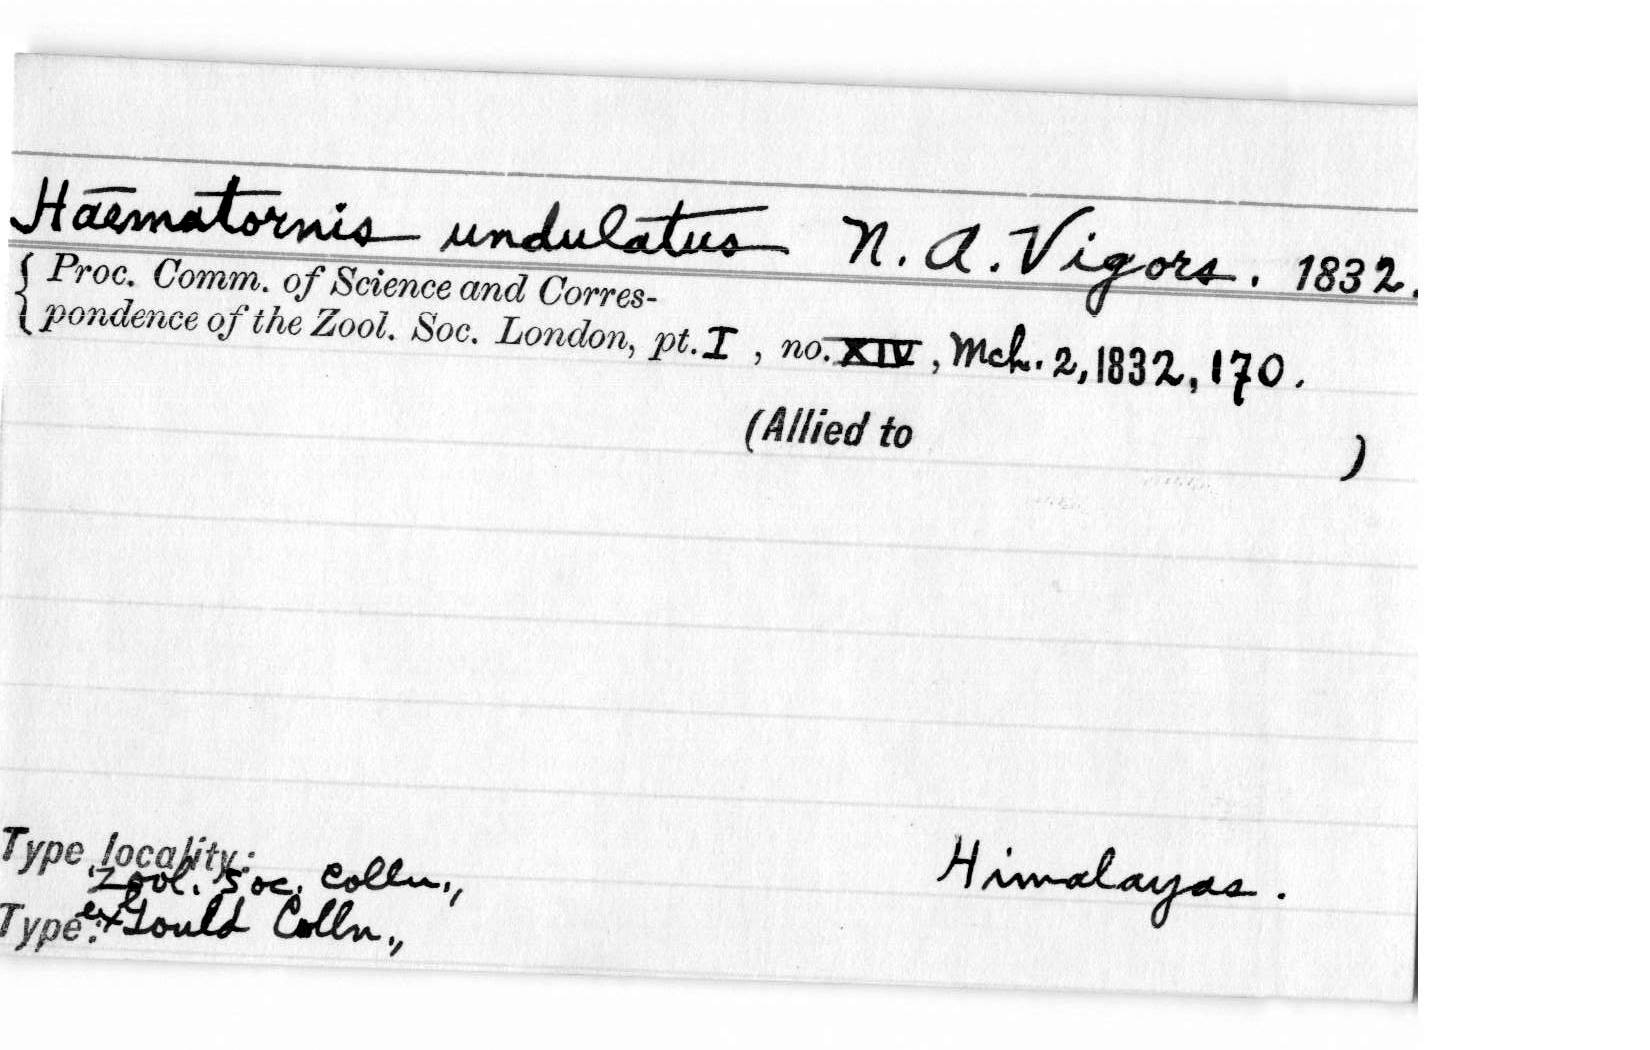 Haematornis undulatus N. A. Vigors. 1832.
Proc. Comm. of Science and Corres-
pondence of the Zool. Soc. London, pt. I , no. XIV , Mch. 2, 1832, 170.
(Allied to )
Type locality: Himalayas.
Zool. Soc. Colln.,
Type: ex Gould Colln.,